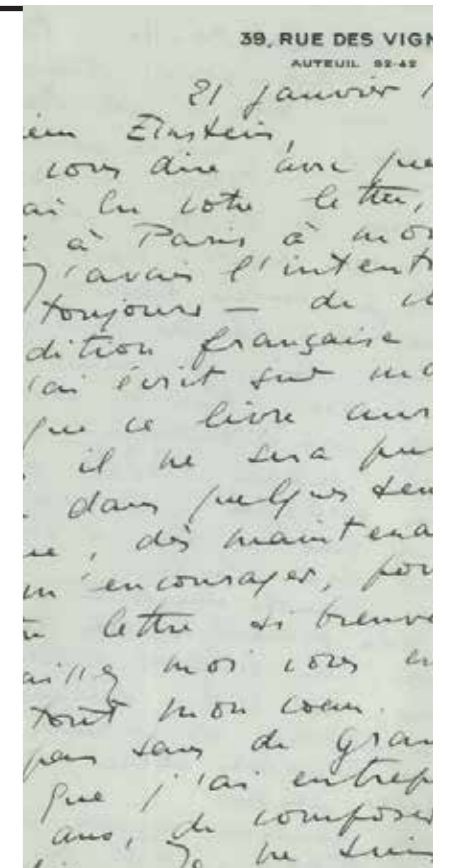 39, RUE DES VIGN
AUTEUIL 92-42
21 janvier 1
ien Einstein,
vous dire avec que
ai lu votre lettre,
à Paris à mon
J'avais l'intent
toujours — de vo
dition française
'ai écrit sur mo
que ce livre aur
il ne sera pu
dans quelques sem
ue, dès maintena
m'encourager, pou
e lettre si bienve
uillez moi vous en
tout mon coeur.
pas sans de gran
que j'ai entrep
ans, de composer
Je ne suis